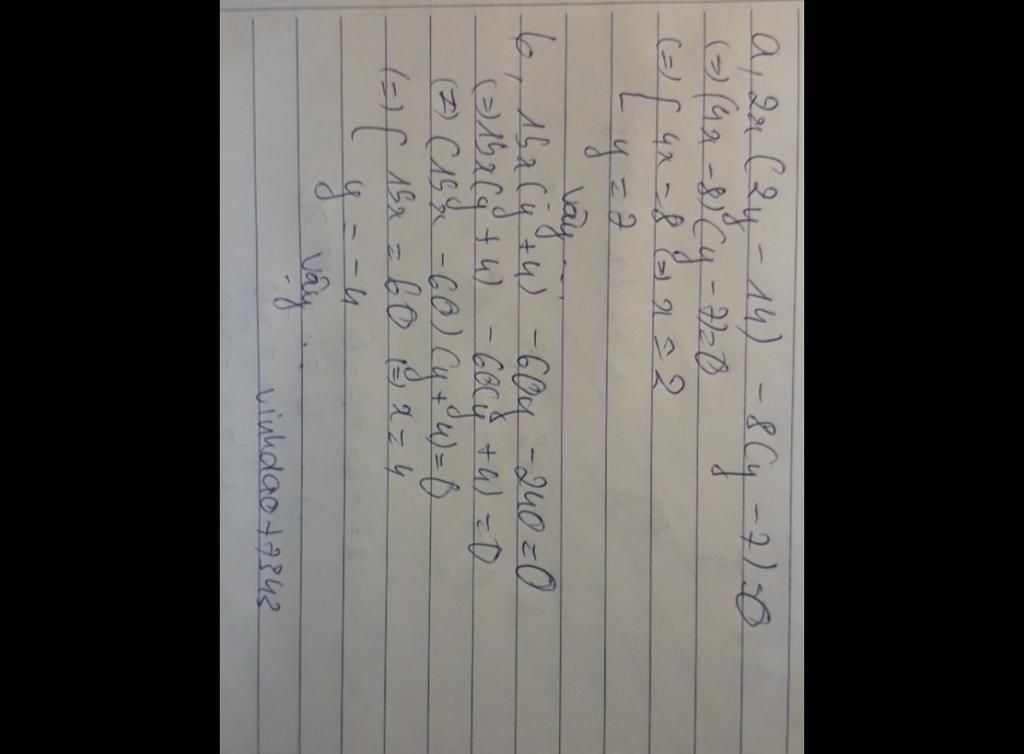 a, 2x(2y - 14) - 8(y - 7) = 0
(=) (4x - 8)(y - 7) = 0
(=) [ 4x - 8 (=) x = 2
y = 7
Vậy ...
b, 15x(y + 4) - 60y - 240 = 0
(=) 15x(y + 4) - 60(y + 4) = 0
(=) (15x - 60)(y + 4) = 0
(=) [ 15x = 60 (=) x = 4
y = -4
Vậy ...
vinhdao+7843